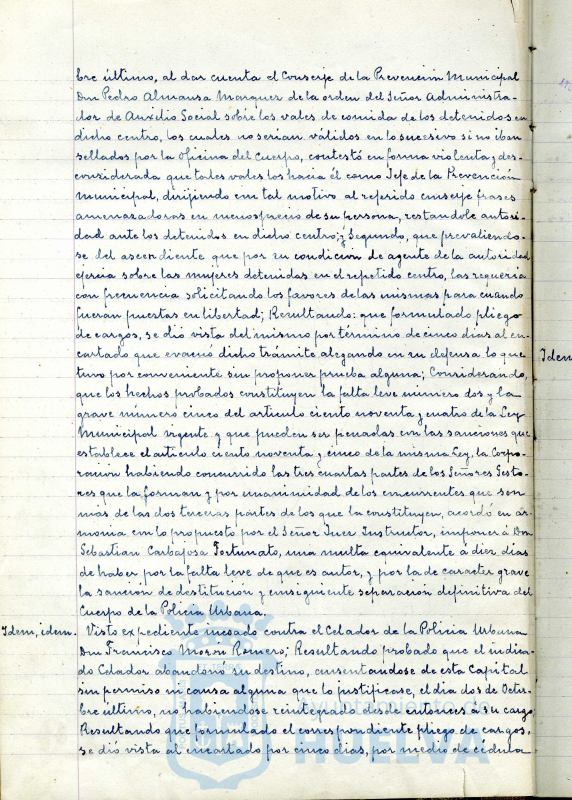 bre último, al dar cuenta el Conserje de la Prevención Municipal
Don Pedro Almansa Marquez de la orden del Señor Administra-
dor de Auxilio Social sobre los vales de comida de los detenidos en
dicho centro, los cuales no serian válidos en lo sucesivo si no iban
sellados por la Oficina del Cuerpo, contestó en forma violenta y des-
considerada que tales vales los hacía él como Jefe de la Prevención
Municipal, dirijiendo con tal motivo al referido conserje frases
amenazadoras en menosprecio de su persona, restandole autori-
dad ante los detenidos en dicho centro; y Segundo, que prevaliendo-
se del ascendiente que por su condición de agente de la autoridad
ejercia sobre las mujeres detenidas en el repetido centro, las requeria
con frecuencia solicitando los favores de las mismas para cuando
fueran puestas en libertad; Resultando: que formulado pliego
de cargos, se dió vista del mismo por término de cinco dias al en-
cartado que evacuó dicho trámite alegando en su defensa lo que
tuvo por conveniente sin proponer prueba alguna; Considerando,
que los hechos probados constituyen la falta leve número dos y la
grave número cinco del articulo ciento noventa y cuatro de la Ley
Municipal vigente y que pueden ser penadas con las sanciones que
establece el articulo ciento noventa y cinco de la misma Ley, la Corpo-
ración habiendo concurrido las tres cuartas partes de los Señores Gesto-
res que la forman y por unanimidad de los concurrentes que son
más de las dos terceras partes de los que la constituyen, acordó en ar-
monia con lo propuesto por el Señor Juez Instructor, imponer á Don
Sebastian Carbajosa Fortunato, una multa equivalente á diez dias
de haber, por la falta leve de que es autor, y por la de caracter grave
la sanción de destitución y consiguiente separación definitiva del
Cuerpo de la Policia Urbana.
Idem, idem. Visto expediente incoado contra el Celador de la Policia Urbana
Don Francisco Morón Romero; Resultando probado que el indica-
do Celador abandonó su destino, ausentandose de esta Capital
sin permiso ni causa alguna que lo justificase, el dia dos de Octu-
bre último, no habiendose reintegrado desde entonces á su cargo
Resultando que formulado el correspondiente pliego de cargos,
se dió vista al encartado por cinco dias, por medio de cédula
Idem
Ayuntamiento de
HUELVA